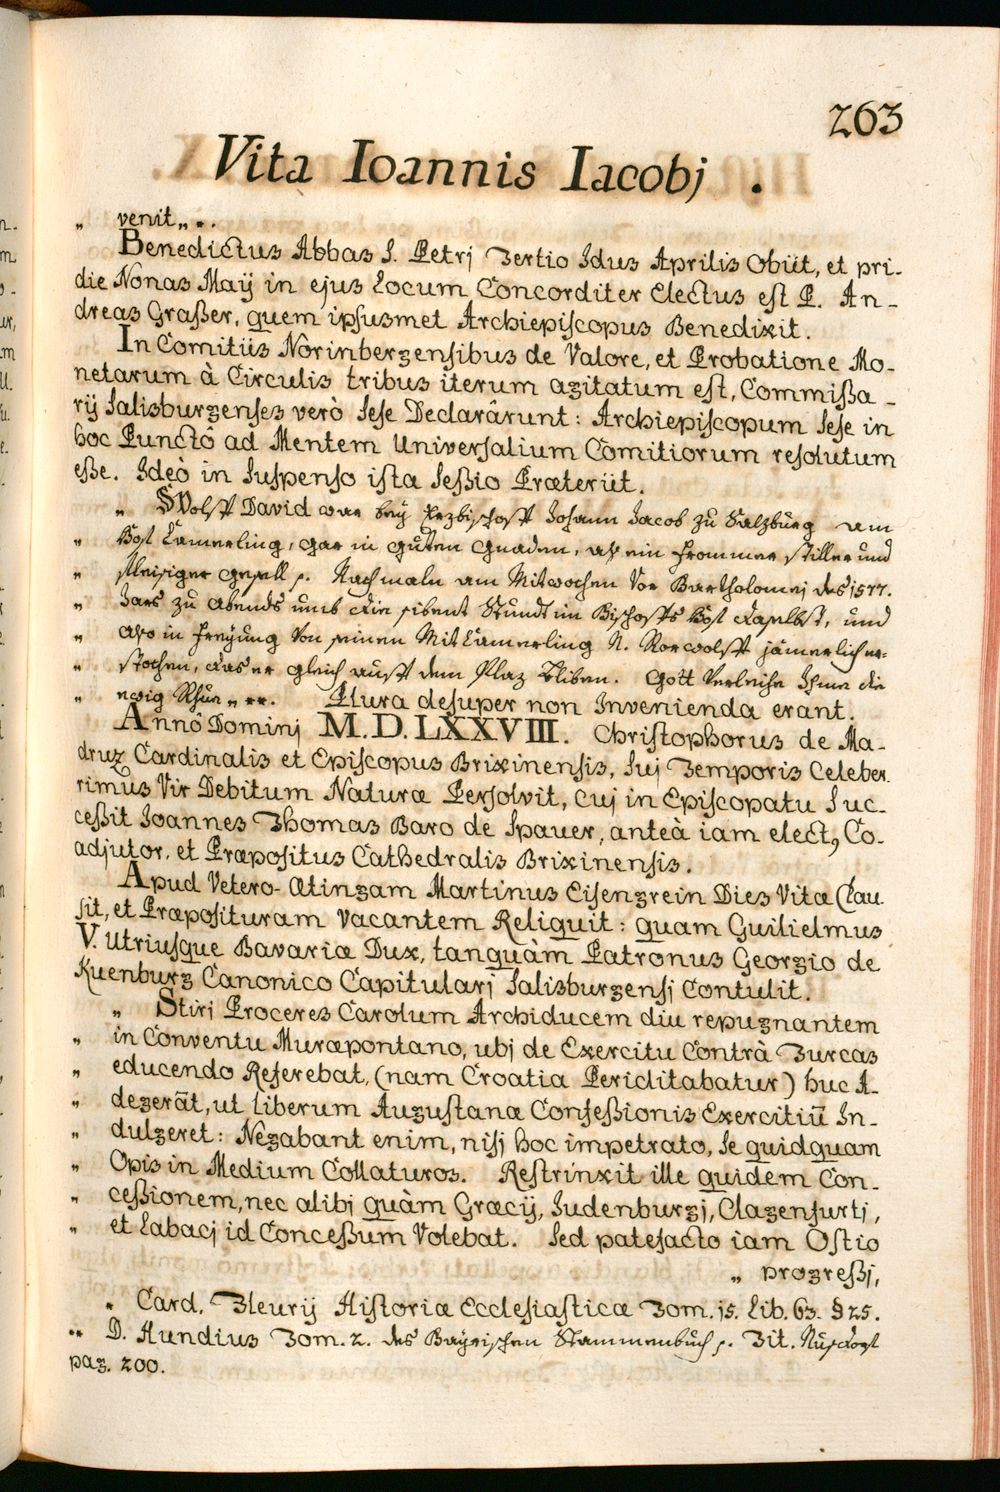 263
Vita Ioannis Iacobj .
„ venit „ *.
Benedictus Abbas S. Petrj Tertio Idus Aprilis Obiit, et pri-
die Nonas Maÿ in ejus Locum Concorditer Electus est P. An-
dreas Graßer, quem ipsusmet Archiepiscopus Benedixit.
In Comitiis Norinbergensibus de Valore, et Probatione Mo-
netarum à Circulis tribus iterum agitatum est, Commißa-
rÿ Salisburgenses verò sese Declarârunt: Archiepiscopum sese in
hoc Punctô ad Mentem Universalium Comitiorum resolutum
eße. Ideò in Suspenso ista Seßio Præteriit.
„ Wolff David war beÿ Erzbischoff Johann Jacob zu Salzburg am
„ Hof Camerling, gar in guten Gnaden, als ein frommer stiller und
„ fleisiger gesell p. Nachmaln am Mitwochen Vor Bartholomej des 1577.
„ Jars zu abends umb die sibent Stundt im Bischoffs Hof daselbst, und
„ also in freÿung Von seinen Mit Camerling N. Rorwolff jämerlich er-
„ stochen, das er gleich auff dem Plaz bliben. Gott Verleihe Ihme die
„ ewig Rhue „ **. Plura desuper non Invenienda erant.
Annô Dominj M.D.LXXVIII. Christophorus de Ma-
druz Cardinalis et Episcopus Brixinensis, Suj Temporis Celeber
rimus Vir Debitum Naturæ Persolvit, cuj in Episcopatu Suc-
ceßit Joannes Thomas Baro de Spauer, anteà iam elect9 Co-
adjutor, et Præpositus Cathedralis Brixinensis.
Apud Vetero-Ætingam Martinus Eisengrein Dies Vitæ Clau
sit, et Præposituram Vacantem Reliquit: quam Guilielmus
V. Utriusque Bavariæ Dux, tanquàm Patronus Georgio de
Kuenburg Canonico Capitularj Salisburgensj Contulit.
„ Stirj Proceres Carolum Archiducem diu repugnantem
„ in Conventu Muræpontano, ubj de Exercitu Contrà Turcas
„ educendo Referebat, (nam Croatia Periditabatur) huc A-
„ degerāt, ut Liberum Augustanæ Confeßionis Exercitiū In-
„ dulgeret: Negabant enim, nisj hoc impetrato, Se quidquam
„ Opis in Medium Collaturos. Restrinxit ille quidem Con-
„ ceßionem, nec alibj quàm Græcÿ, Judenburgj, Clagenfurtj,
„ et Labacj id Conceßum Volebat. Sed patefacto iam Ostio
„ progreßj,
* Card. Fleurÿ Historiæ Ecclesiasticæ Tom. 35. Lib. 63. § 25.
** D. Hundius Tom. 2. des Baÿrischen Stammenbuch p. Tit. Nusdorf
pag. 200.